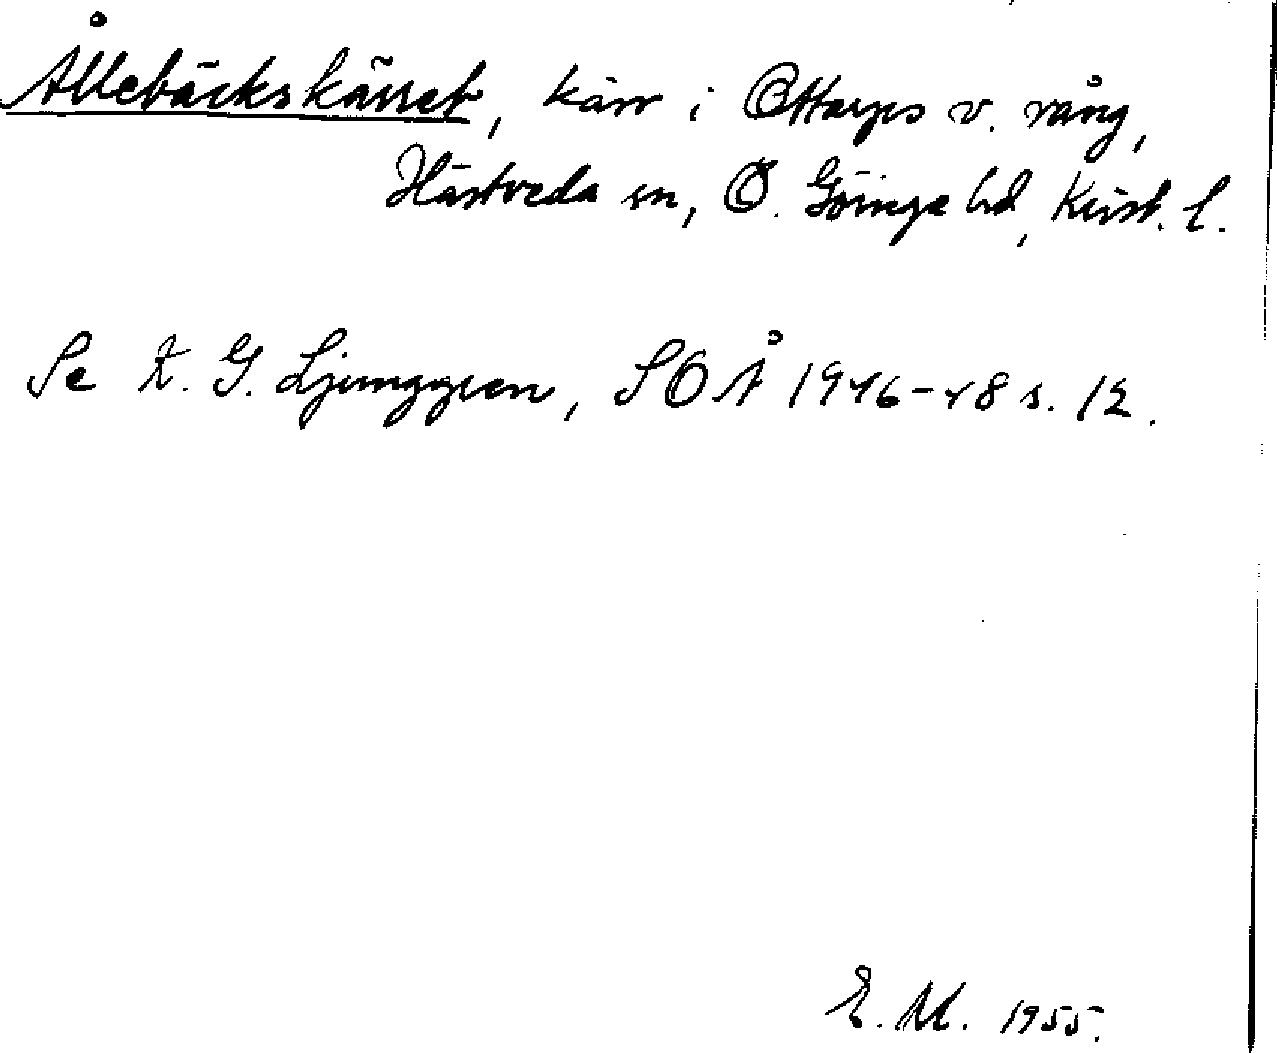 Ållebäckskärret, kärr i Ottarps v. vång,
Hästveda sn, Ö. Göinge hd, Krist. l.
Se K. G. Ljunggren, SOÅ 1946-48 s. 12.
E. M. 1955.